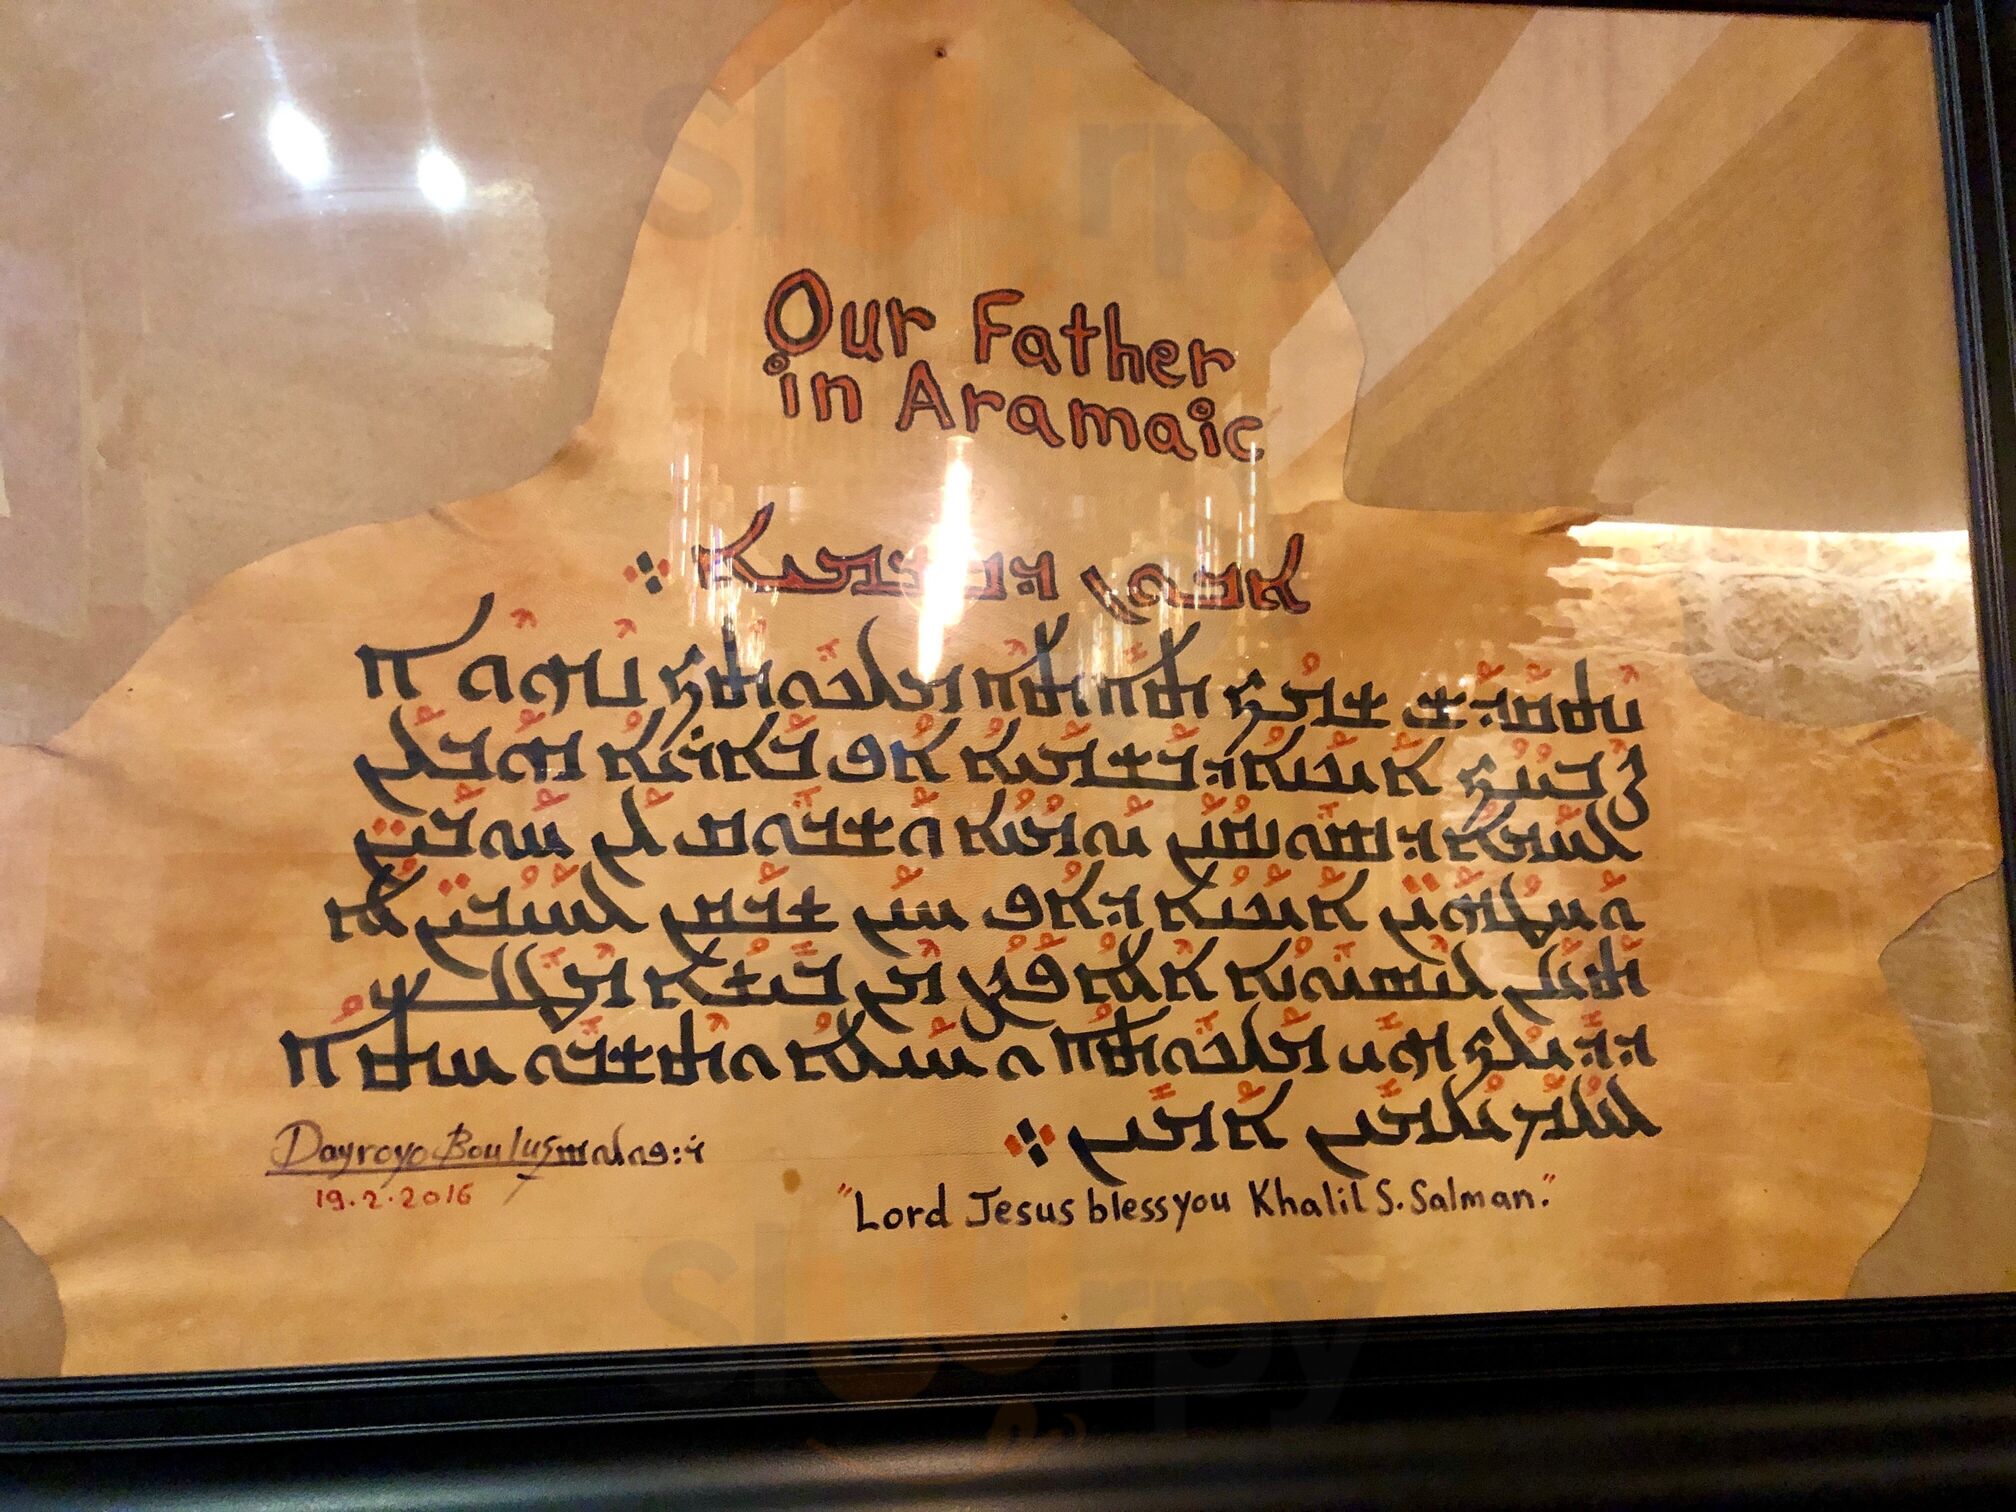 Our Father
in Aramaic
ܐܒܘܢ ܕܒܫܡܝܐ
ܢܬܩܕܫ ܫܡܟ ܬܐܬܐ ܡܠܟܘܬܟ ܢܗܘܐ
ܨܒܝܢܟ ܐܝܟܢܐ ܕܒܫܡܝܐ ܐܦ ܒܐܪܥܐ ܗܒ ܠܢ
ܠܚܡܐ ܕܣܘܢܩܢܢ ܝܘܡܢܐ ܘܫܒܘܩ ܠܢ ܚܘܒܝܢ
ܘܚܛܗܝܢ ܐܝܟܢܐ ܕܐܦ ܚܢܢ ܫܒܩܢ ܠܚܝܒܝܢ ܠܐ
ܬܥܠܢ ܠܢܣܝܘܢܐ ܐܠܐ ܦܨܢ ܡܢ ܒܝܫܐ ܡܛܠ
ܕܕܝܠܟ ܗܝ ܡܠܟܘܬܐ ܘܚܝܠܐ ܘܬܫܒܘܚܬܐ
ܠܥܠܡ ܥܠܡܝܢ ܐܡܝܢ
Dayroyo Boulus ܪ:ܦܘܠܘܣ
19.2.2016
"Lord Jesus bless you Khalil S. Salman."
Slurpy
Slurpy